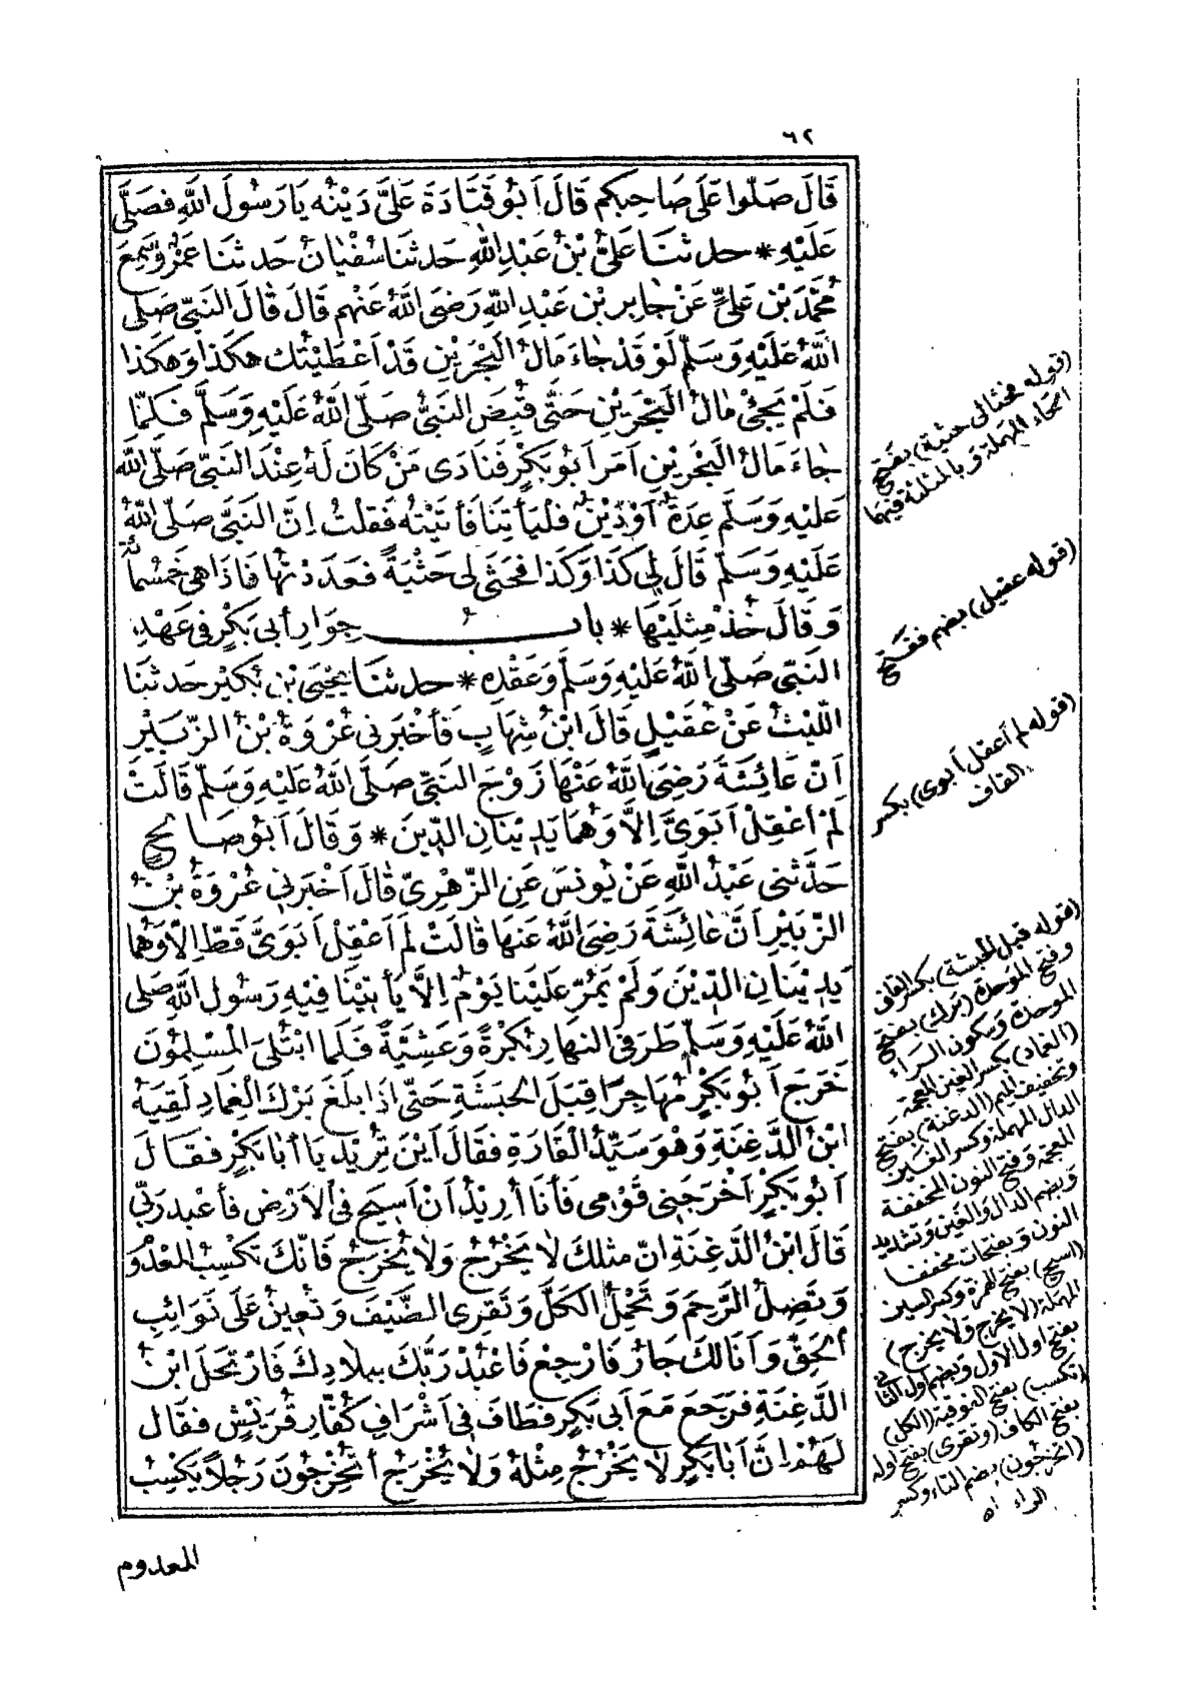 ٦٢
قَالَ صَلّوا عَلَى صَاحِبِكم قَالَ اَبُو قَتَادَةَ عَلَىَّ دَيْنُه يَا رَسُولَ اللَّهِ فَصَلَّى
عَلَيْهِ * حدثنا عَلىُّ بْنُ عَبْدِ اللهِ حَدثنَا سُفْيَانُ حَدثنَا عَمْرٌو سَمِعَ
مُحَمَّدَ بْنَ عَلىٍّ عَنْ جَابِرِ بْنِ عَبْدِ اللَّهِ رَضِىَ اللَّهُ عَنْهم قَالَ قَالَ النَبّى صَلى
اللَّهُ عَلَيْهِ وَسَلّم لَوْ قَدْ جَاءَ مَالُ الْبَحْرَيْنِ قَدْ اَعْطَيْتُكَ هكَذا وَهكَذا
فَلَمْ يَجِئْ مَالُ الْبَحْرَيْنِ حَتّى قُبِضَ النَبىُّ صَلّى اللَّهُ عَلَيْهِ وَسَلَّمَ فَلَمّا
جَاءَ مَالُ الْبَحْرَيْنِ اَمَرَ اَبُو بَكْرٍ فَنَادَى مَنْ كَانَ لَهُ عِنْدَ النَبّى صَلّى اللَّه
عَلَيْهِ وَسَلَّم عِدَةٌ اَوْ دَيْنٌ فَلْيَأتِنَا فَأتَيْتُه فَقلْتُ اِنّ النَبىَّ صَلّى اللَّهُ
عَلَيْهِ وَسَلّم قَالَ لِى كَذَا وَكَذَا فَحَثَى لى حَثْيَةً فَعَدَدْتُهَا فَاِذَا هىَ خَمْسُمائة
وَقَالَ خُذْ مِثْلَيْهَا * باب جِوَارِ أبى بَكْرٍ فى عَهْدِ
النَبّى صَلّى اللَّهُ عَلَيْهِ وَسَلَّم وَعَقْدِه * حدثنا يَحْيىَ بْن بُكَيْر حَدثنَا
اللّيْثُ عَنْ عُقَيْلٍ قَالَ ابْنُ شِهَابٍ فَأخْبَرَنى عُرْوَةُ بْنُ الزّبَيْرِ
اَنّ عَائِشَةَ رَضِىَ اللَّهُ عَنْهَا زَوْجَ النَبّى صَلّى اللَّهُ عَلَيْهِ وَسَلّم قَالَتْ
لَمْ أعْقِلْ اَبَوَىَّ اِلَّا وَهُمَا يَدِينَانِ الدّينَ * وَقَالَ اَبُو صَالح
حَدَّثنى عَبْدُ اللَّهِ عَنْ يُونسَ عَنِ الزّهْرِىّ قَالَ اَخْبَرَنى عُرْوَةُ بْنُ
الزّبَيْرِ أنَّ عَائِشَةَ رَضِىَ اللَّهُ عَنهَا قَالَتْ لَمْ اَعْقِلْ أبَوَىَّ قَطّ اِلّا وَهُمَا
يَدِينَانِ الدّينَ وَلَمْ يَمُرّ عَلَيْنَا يَوْمٌ اِلَّا يَأتِيْنَا فِيْهِ رَسُولُ اللَّهِ صَلى
اللَّهُ عَلَيْهِ وَسَلّم طَرَفى النهَارِ بُكْرَةً وَعَشِيَّةً فَلَمّا ابْتُلِىَ الْمُسْلِمُونَ
خَرَجَ اَبُو بَكْرٍ مُهَاجِرًا قِبَلَ الحَبَشَةِ حَتّى اِذَا بَلَغَ بَرْكَ الْغِمَادِ لَقِيَهُ
ابْنُ الدَّغِنَةِ وَهُوَ سَيِّدُ الْقَارَةِ فَقَالَ اَيْنَ تُرِيْدُ يَا أبَا بَكْرٍ فَقَالَ
اَبُو بَكْرٍ اَخْرَجَنِى قَوْمِى فَأنَا أُرِيْدُ اَنْ اَسِيحَ فى الاَرْضِ فأعْبدَ رَبّى
قَالَ ابْنُ الدَّغِنَةِ اِنّ مثْلكَ لَا يَخْرُجُ وَلَا يُخْرَجُ فَاِنّكَ تَكْسِبُ المَعْدُومَ
وَتَصِلُ الرَّحِمَ وَتَحْمِلُ الْكَلَّ وَتَقْرِى الضَّيْفَ وَتُعِيْنُ عَلَى نَوَائِبِ
الحَقِّ وَاَنَا لكَ جَارٌ فَارْجِعْ فَاعْبُدْ رَبَّكَ بِبِلَادِكَ فَارْتَحَلَ ابْنُ
الدَّغِنَةِ فَرَجَعَ مَعَ أبى بَكْرٍ فطَافَ فى اَشْرَافِ كُفّارِ قُرَيْشٍ فقَال
لَهُمْ اِنَّ اَبَا بَكْرٍ لَا يَخْرُجُ مِثْلُهُ وَلَا يُخْرَجُ أتُخْرِجُونَ رَجُلًا يَكْسِبُ
المعدوم
(قوله فحثا لى حثية) بفتح
الحاء المهملة وبالمثلثة فيهما
(قوله عقيل) بضم ففتح
(قوله لم أعقل أبوى) بكسر
القاف
(قوله قبل الحبشة) بكسر القاف
وفتح الموحدة (برك) بفتح
الموحدة وسكون الراء
(الغماد) بكسر الغين المعجمة
وتخفيف الميم (الدغنة) بفتح
الدال المهملة وكسر الغين
المعجمة وفتح النون المخففة
وبضم الدال والغين وتشديد
النون وبفتحات مخففا
(اسيح) بفتح الهمزة وكسر السين
المهملة (لا يخرج ولا يخرج)
بفتح أول الاول وبضم أول الثانى
(تكسب) بفتح الفوقية (الكل)
بفتح الكاف (وتقرى) بفتح اوله
(اتخرجون) بضم التاء وكسر
الراء اه